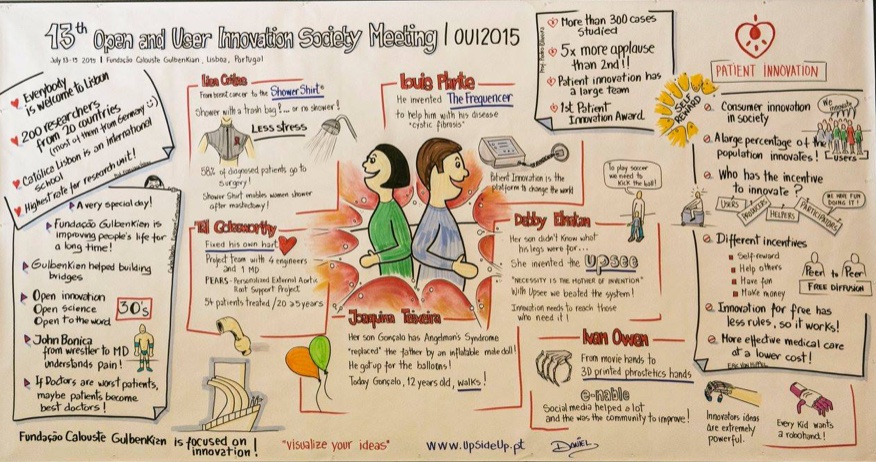 13th Open and User Innovation Society Meeting | OUI2015
July 13-15 2015 | Fundação Calouste Gulbenkian, Lisboa, Portugal
Everybody
is welcome to Lisbon
200 researchers
from 20 countries
(most of them from Germany :))
Católica Lisbon is an International
school
Highest rate for research unit!
A very special day!
Fundação Gulbenkian is
improving people's life for
a long time!
Gulbenkien helped building
bridges
Open innovation
Open Science
Open to the word
30's
John Bonica
from wrestler to MD
understands pain!
If Doctors are worst patients,
maybe patients become
best doctors!
Fundação Calouste Gulbenkian is focused on
innovation!
Lisa
From breast cancer to the Shower Shirt®
Shower with a trash bag?... or no shower!
Less stress
58% of diagnosed patients go to
surgery!
Shower Shirt enables women shower
after mastectomy!
Tal Golesworthy
Fixed his own hart
Project team with 4 engineers
and 1 MD
PEARS - Personalized External Aortic
Root Support Project
54 patients treated / 20 ≥5 years
Louis Plante
He invented The Frequencer
to help him with his disease
"cystic fibrosis"
Patient Innovation is the
platform to change the world
Debby Elnatan
Her son didn't know what
his legs were for...
She invented the Upsee
"Necessity is the mother of invention"
With Upsee we beated the system!
Innovation needs to reach those
who need it!
To play soccer
we need to
kick the ball!
Joaquina Teixeira
Her son Gonçalo has Angelman's Syndrome
"replaced" the father by an inflatable male doll!
He got up for the balloons!
Today Gonçalo, 12 years old, walks!
Ivan Owen
From movie hands to
3D printed phrostetics hands
e-nable
Social media helped a lot
and the was the community to improve!
"visualize your ideas"
www.UpSideUp.pt
Daniel
More than 300 cases
studied
5x more applause
than 2nd!!
Patient innovation has
a large team
1st Patient
Innovation Award
PATIENT INNOVATION
SELF
REWARD
Consumer innovation
in society
A large percentage of the
population innovates!
We innovate
Users
Who has the incentive
to innovate?
USERS
PRODUCERS
HELPERS
PARTICIPATORS
WE HAVE FUN
DOING IT!
Different incentives
Self-reward
Help others
Have fun
Make money
Peer to Peer
FREE DIFFUSION
Innovation for free has
less rules, so it works!
More effective medical care
at a lower cost!
Eric Von Hippel
Innovators ideas
are extremely
powerful.
Every Kid wants
a robohand!